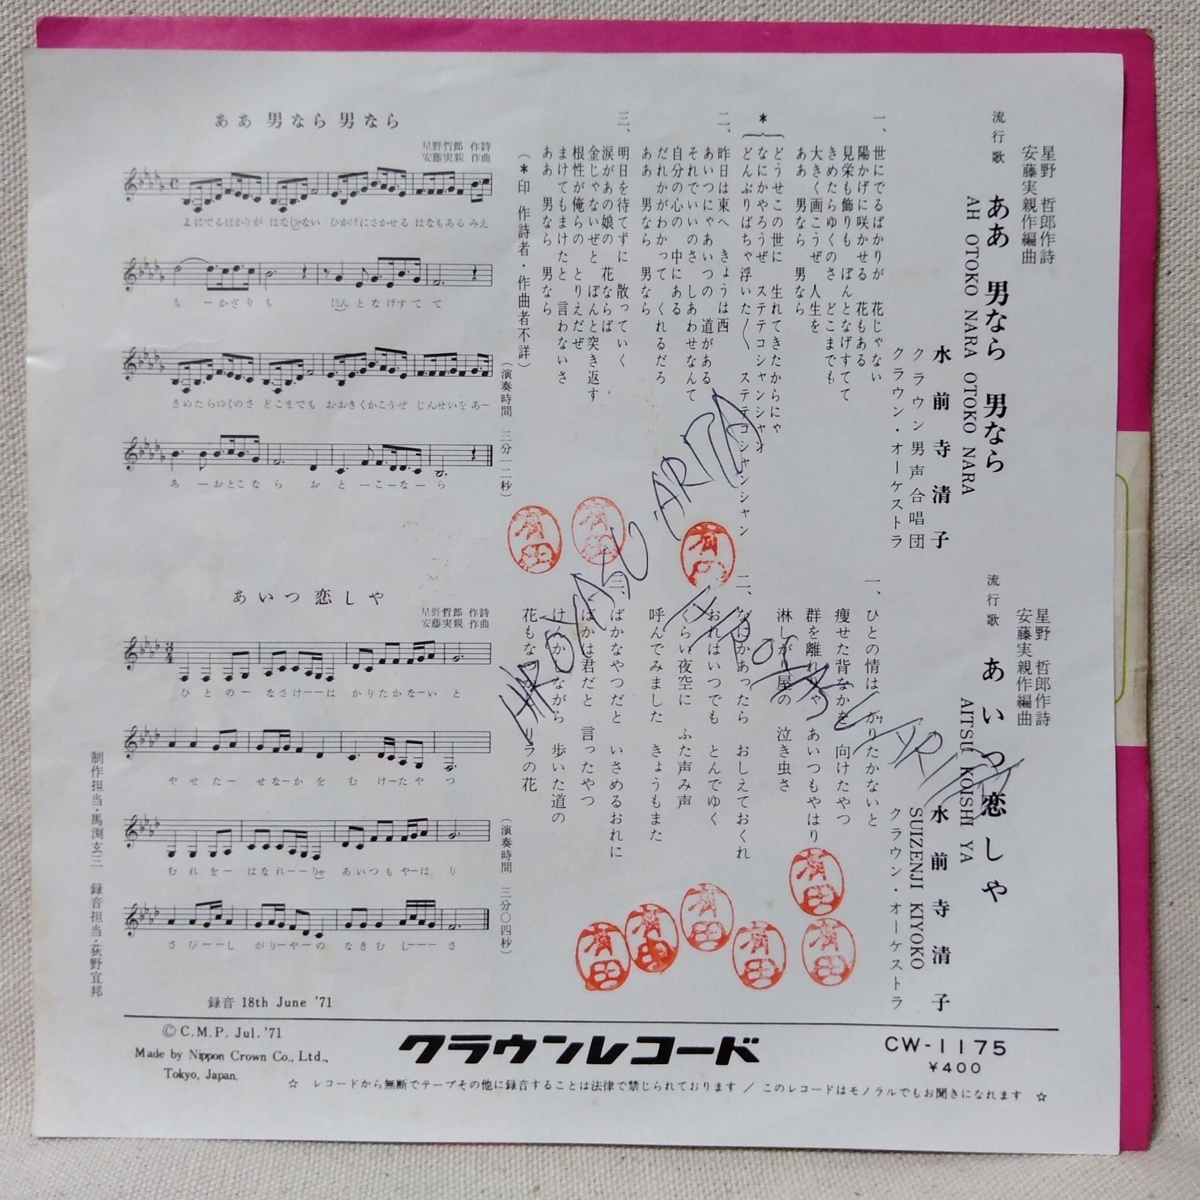 流行歌
ああ 男なら 男なら
AH OTOKO NARA OTOKO NARA
星野 哲郎作詩
安藤実親作編曲
水前寺清子
クラウン男声合唱団
クラウン・オーケストラ
一、世にでるばかりが 花じゃない
陽かげに咲かせる 花もある
見栄も飾りも ぽんとなげすてて
きめたらゆくのさ どこまでも
大きく画こうぜ 人生を
ああ 男なら 男なら
*
どうせこの世に 生れてきたからにゃ
なにかやろうぜ ステテコシャンシャン
どんぶりばちゃ浮いた〳〵 ステテコシャンシャン
二、昨日は東へ きょうは西
あいつにゃあいつの 道がある
それでいいのさ しあわせなんて
自分の心の 中にある
だれかがわかって くれるだろ
ああ 男なら 男なら
三、明日を待てずに 散っていく
涙があの娘の 花ならば
金じゃないぜと ぽんと突き返す
根性が俺らの とりえだぜ
まけてもまけたと 言わないさ
ああ 男なら 男なら
(*印 作詩者・作曲者不詳)
(演奏時間 三分一二秒)
ああ 男なら 男なら
星野哲郎 作詩
安藤実親 作曲
よにでるばかりが はなじゃない ひかげにさかせる はなもある みえ
も ーかざりも ぽんとなげすて て
きめたらゆくのさ どこまでも おおきくかこうぜ じんせいを あー
あ ーおとこなら お とーこーなーら
流行歌
あいつ恋しや
AITSU KOISHI YA
星野 哲郎作詩
安藤実親作編曲
水前寺清子
SUIZENJI KIYOKO
クラウン・オーケストラ
一、ひとの情は かりたかないと
痩せた背なかを 向けたやつ
群を離りゃ あいつもやはり
淋しがり屋の 泣き虫さ
二、なにかあったら おしえておくれ
おれはいつでも とんでゆく
くらい夜空に ふた声み声
呼んでみました きょうもまた
三、ばかなやつだと いさめるおれに
ばかは君だと 言ったやつ
けんかしながら 歩いた道の
花もなつかし リラの花
(演奏時間 三分〇四秒)
あいつ恋しや
星野哲郎 作詩
安藤実親 作曲
ひとのー なさけーーは かりたかなーい と
やせたー せなーかを む けーたや つ
むれをー はなれーーりゃ あいつもやーは り
さびーーし がりーやーの なきむ しーーー さ
HIROYASU ARITA
HIROYASU ARITA
有田
有田
有田
有田
有田
有田
有田
有田
有田
制作担当・馬渕玄三 録音担当・荻野宜邦
録音 18th June '71
Ⓒ C.M.P. Jul. '71
Made by Nippon Crown Co., Ltd.,
Tokyo, Japan.
クラウンレコード
CW-1175
¥400
☆ レコードから無断でテープその他に録音することは法律で禁じられております / このレコードはモノラルでもお聞きになれます ☆